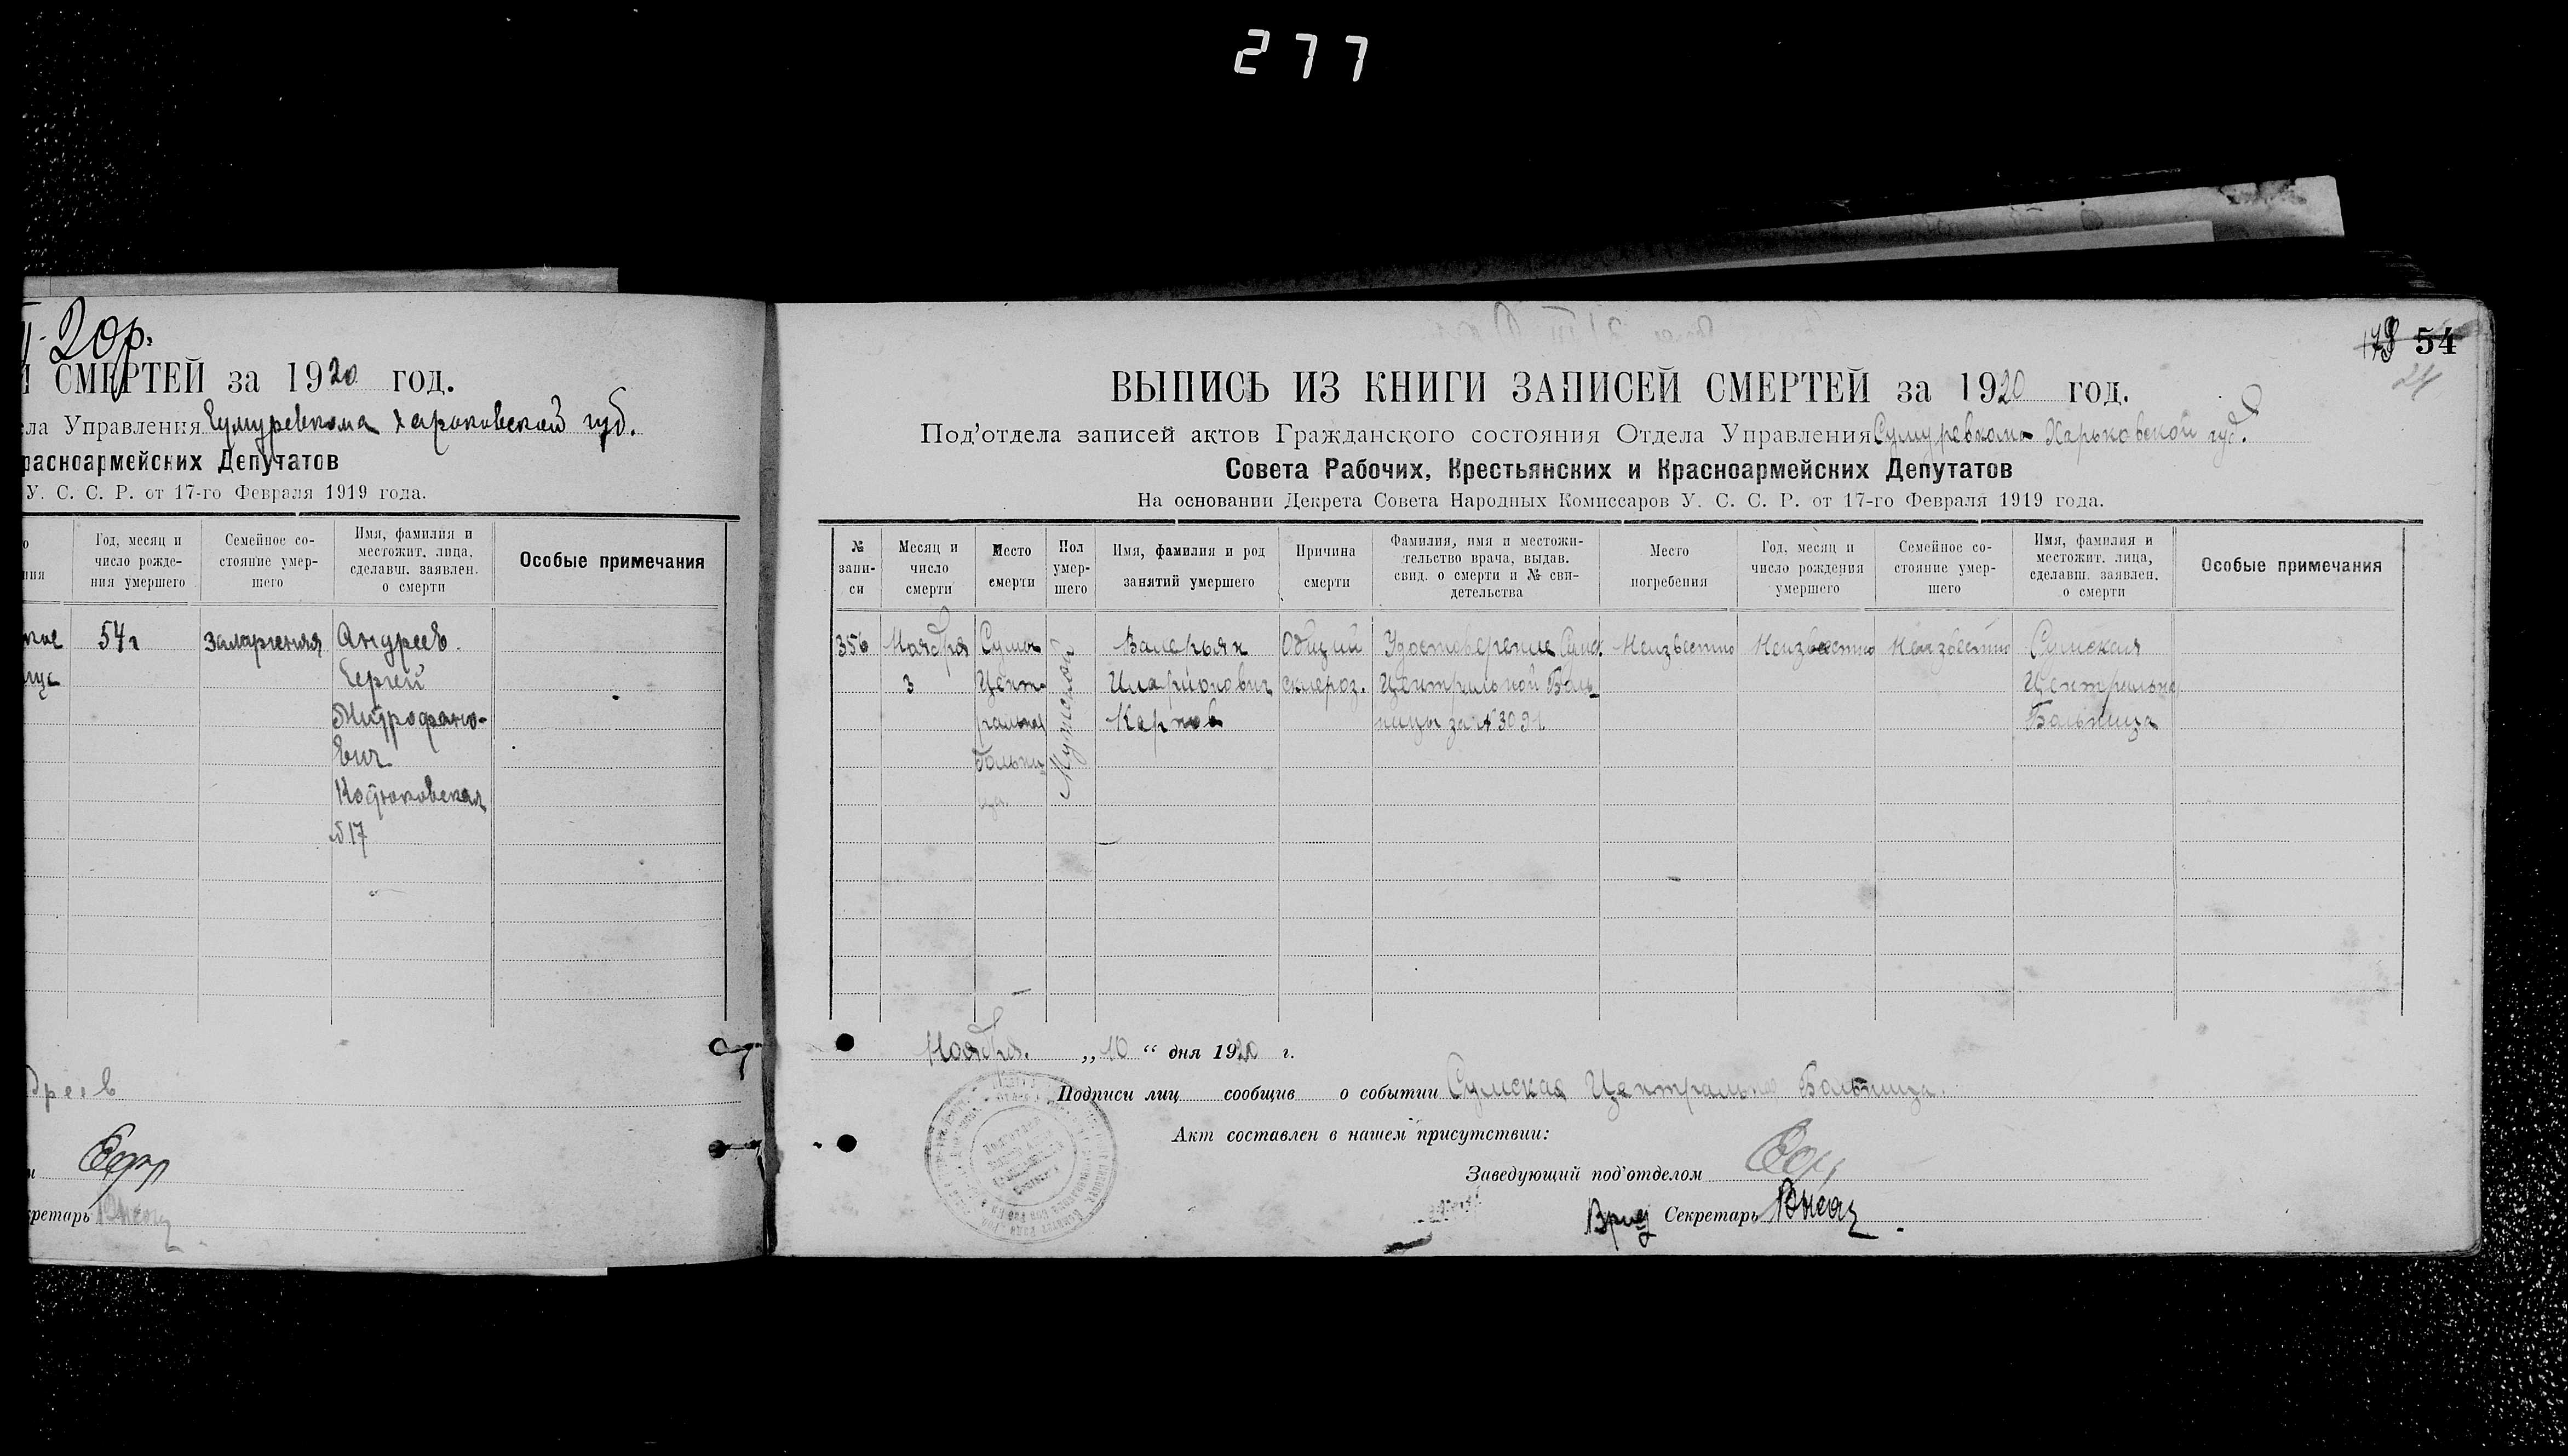 277
20р.
СМЕРТЕЙ за 1920 год.
ла Управления Сумуревкома Харьковской губ.
расноармейских Депутатов
У. С. С. Р. от 17-го Февраля 1919 года.
Год, месяц и число рожде-ния умершего
Семейное со-стояние умер-шего
Имя, фамилия и местожит. лица, сделавш. заявлен. о смерти
Особые примечания
54 г
Замужняя
Андреев
Сергей
Митрофано-
вич
№ 17
дреев
кретарь
54
24
ВЫПИСЬ ИЗ КНИГИ ЗАПИСЕЙ СМЕРТЕЙ за 1920 год.
Под'отдела записей актов Гражданского состояния Отдела Управления Сумуревкома Харьковской губ.
Совета Рабочих, Крестьянских и Красноармейских Депутатов
На основании Декрета Совета Народных Комиссаров У. С. С. Р. от 17-го Февраля 1919 года.
№ запи-си
Месяц и число смерти
Место смерти
Пол умер-шего
Имя, фамилия и род занятий умершего
Причина смерти
Фамилия, имя и местожи-тельство врача, выдав. свид. о смерти и № сви-детельства
Место погребения
Год, месяц и число рождения умершего
Семейное со-стояние умер-шего
Имя, фамилия и местожит. лица, сделавш. заявлен. о смерти
Особые примечания
356 Ноября Сумы Мужской Валерьян Общий Удостоверение Сумс. Неизвестно Неизвестно Неизвестно Сумская
3 Цент- Иларионович склероз. Центральной Боль- Центральна
ральная Карпов ницы за № 3091 Больница
больни-
ца
Ноября „10“ дня 1920 г.
Подписи лиц сообщив о событии Сумская Центральна Больница.
Акт составлен в нашем присутствии:
Заведующий под'отделом
Врид Секретарь